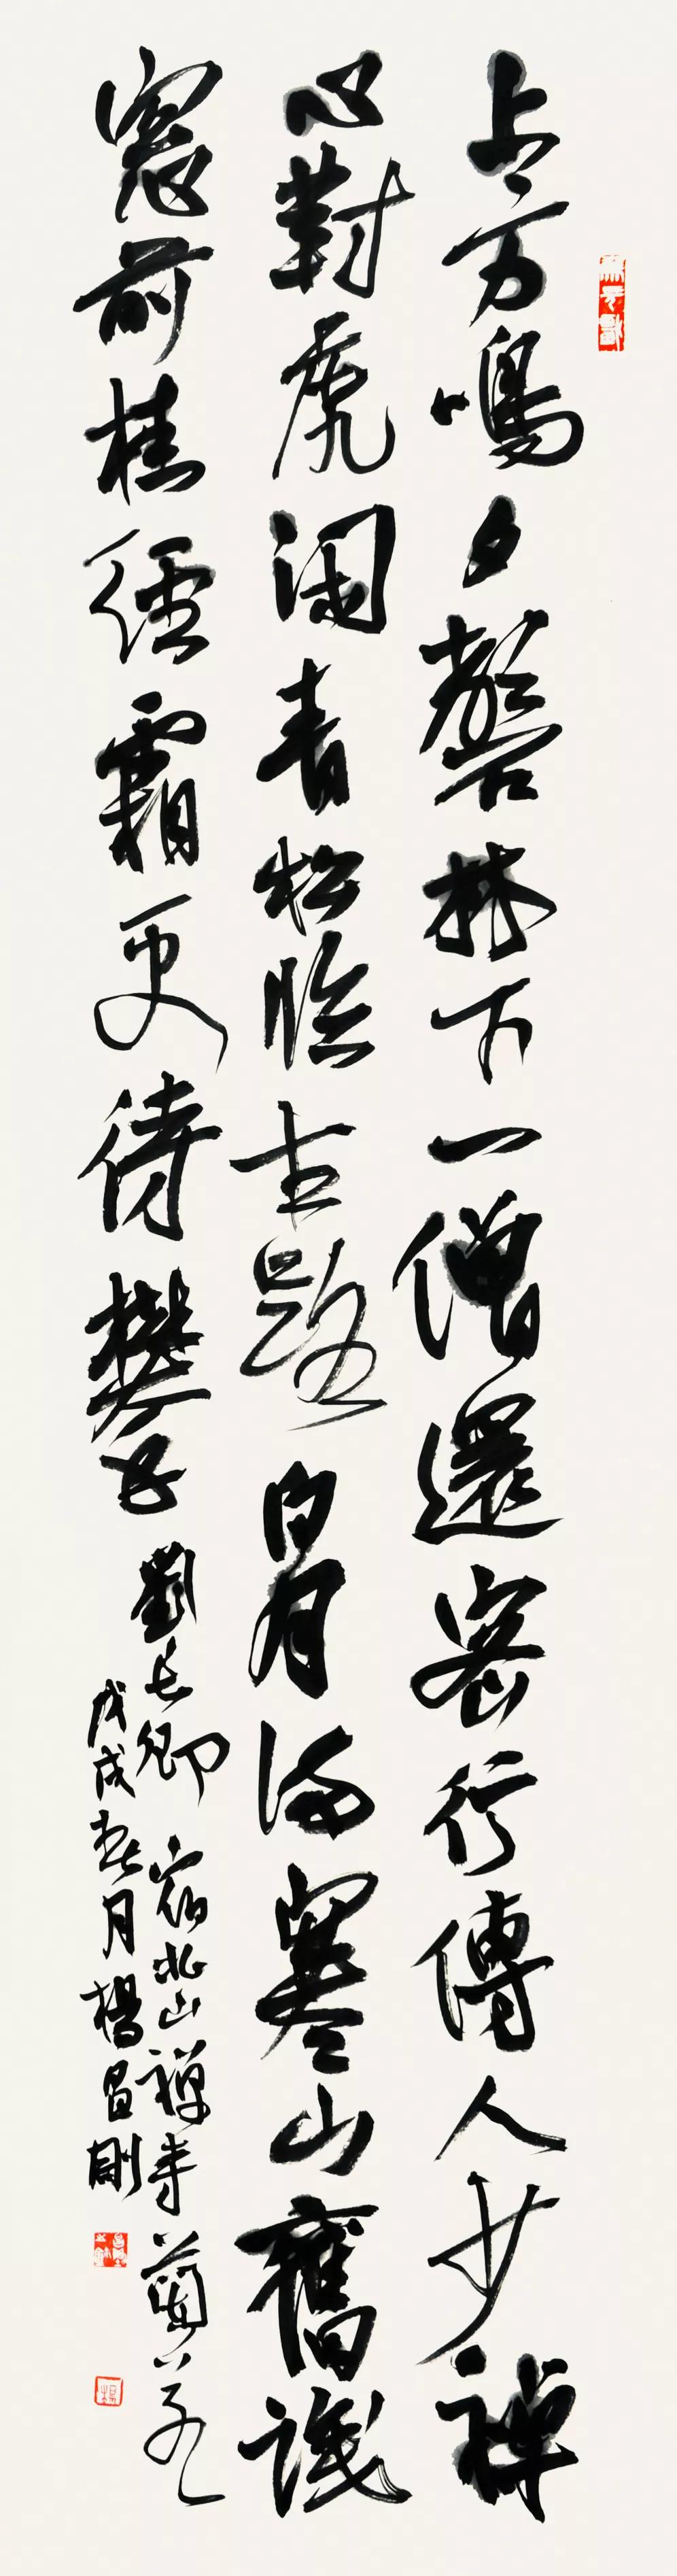 上方鳴夕磬林下一僧還密行傳人少禪
心對虎閑青松臨古路白月滿寒山舊識
窻前桂經霜更待攀 劉長卿 宿北山禪寺蘭若
戊戌春月楊昌剛